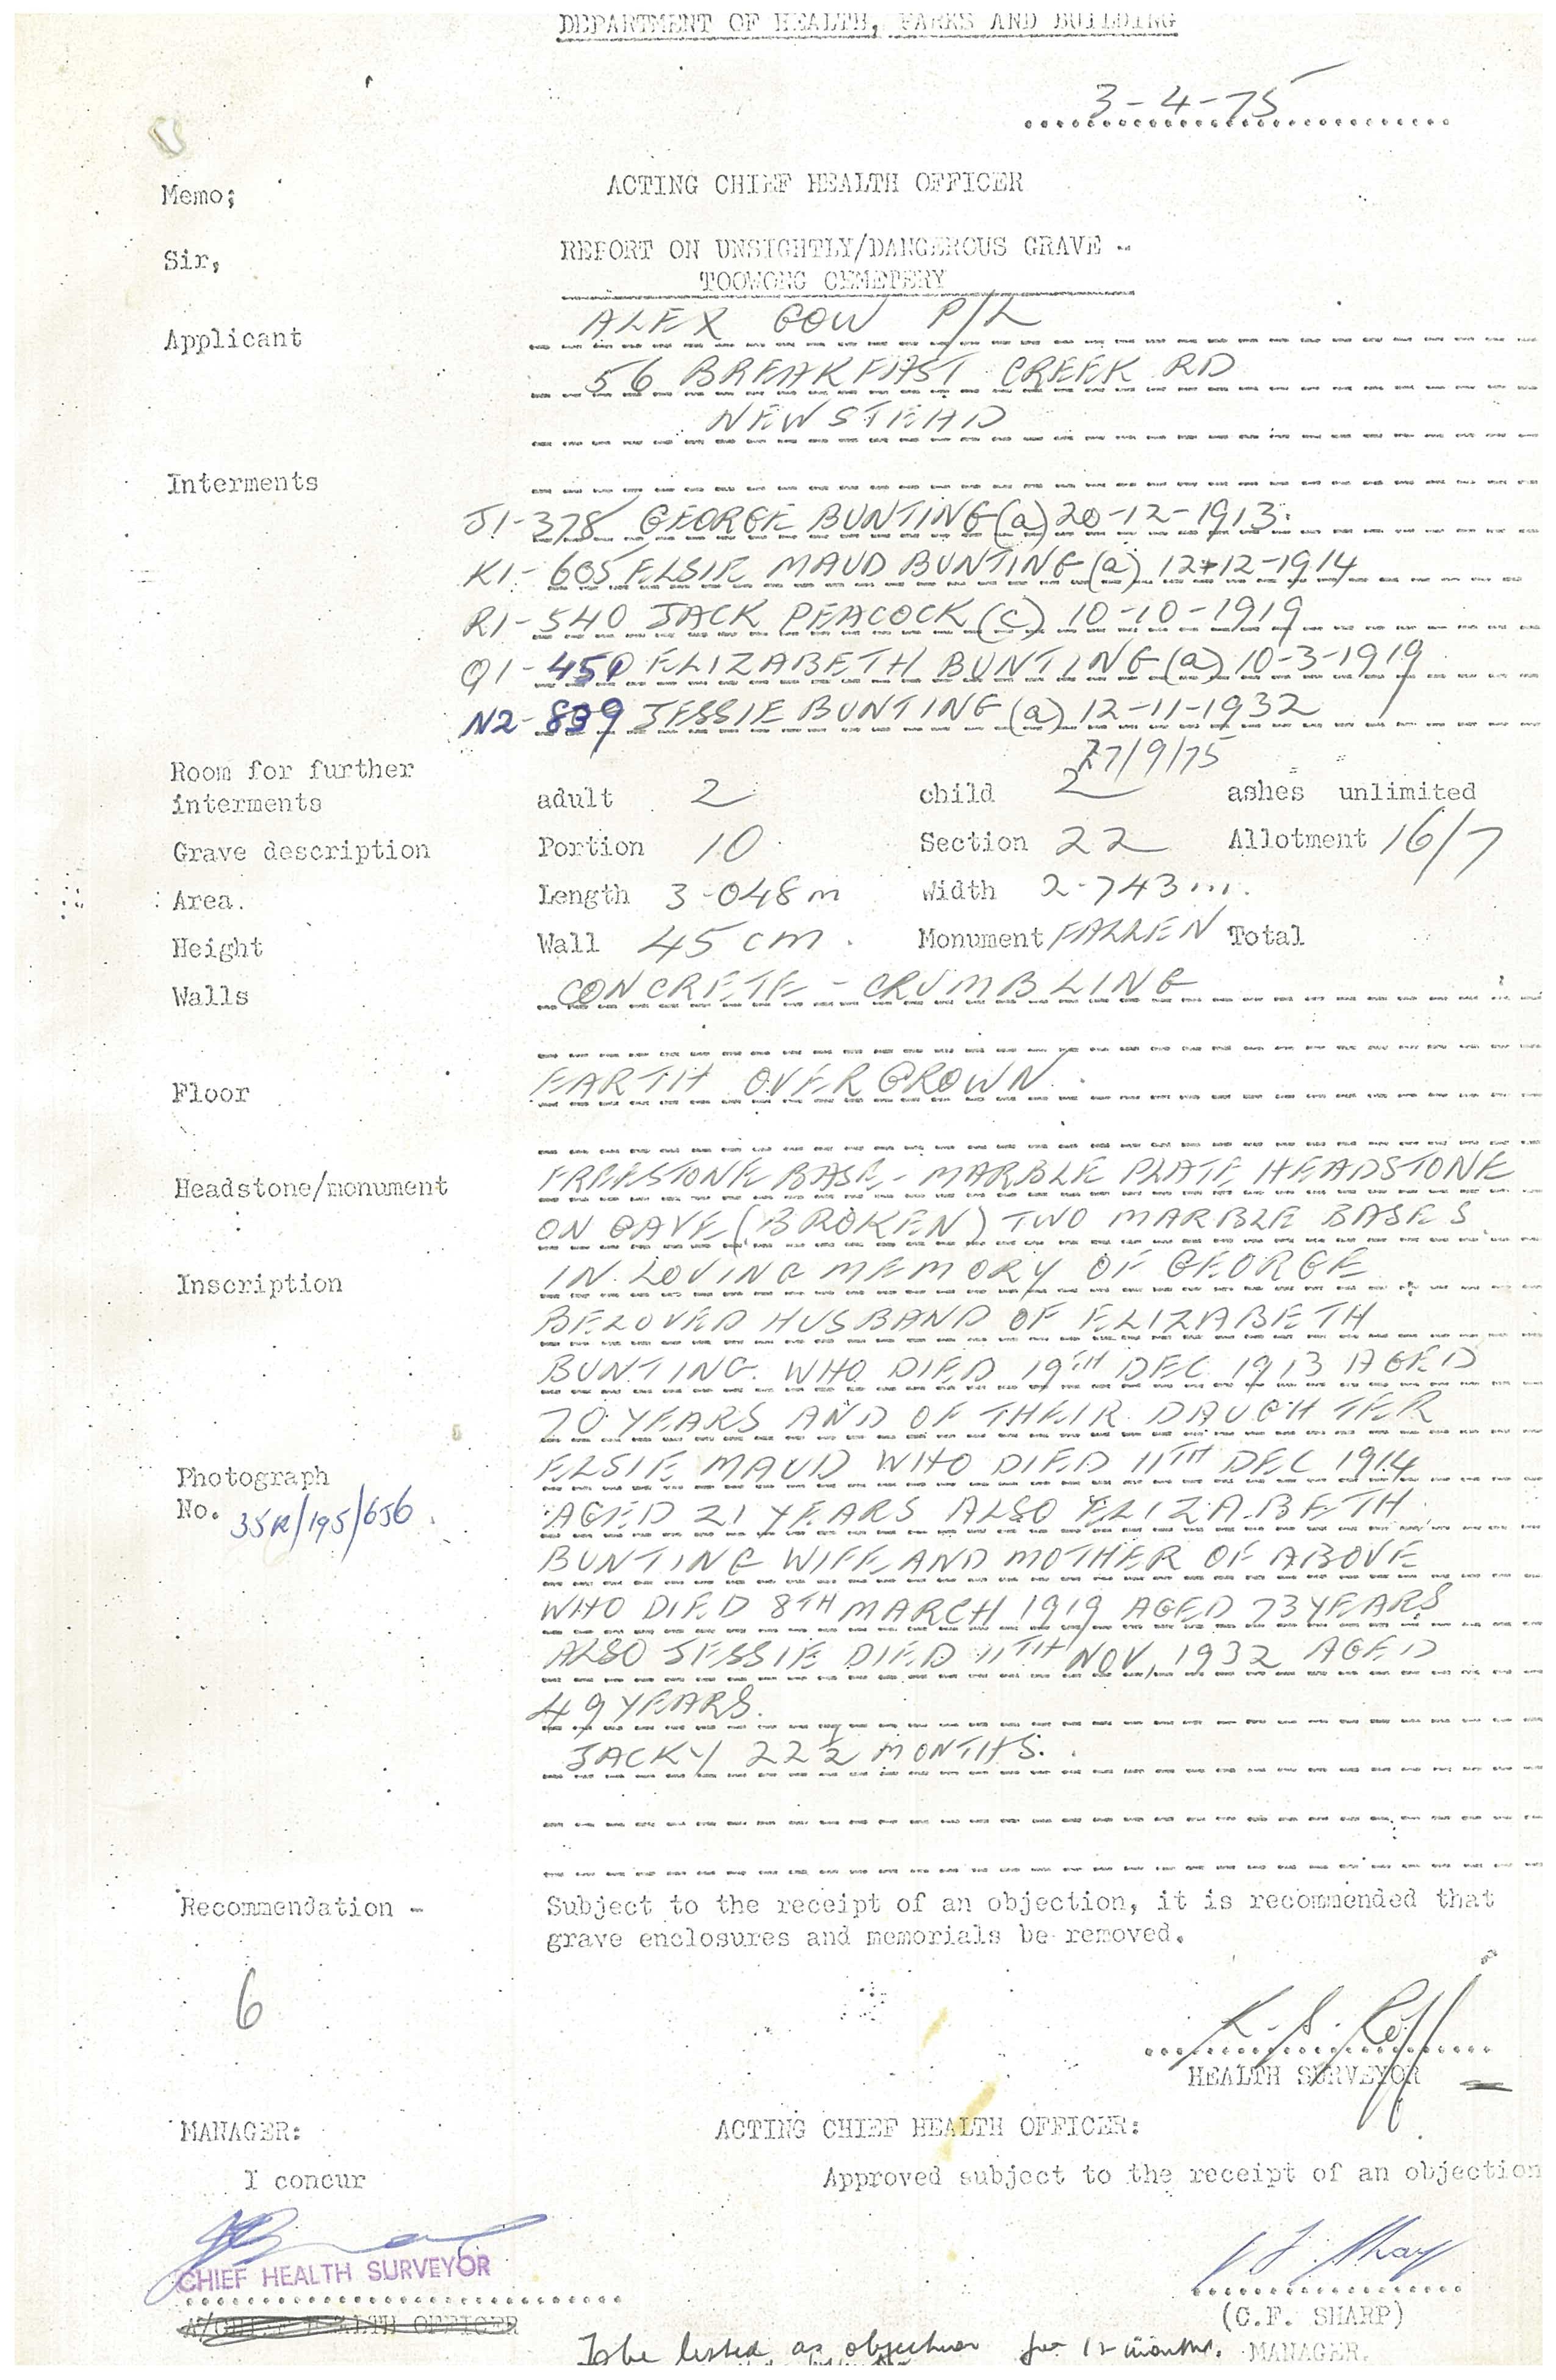 DEPARTMENT OF HEALTH, PARKS AND BUILDING
3-4-75
Memo; ACTING CHIEF HEALTH OFFICER
Sir, REPORT ON UNSIGHTLY/DANGEROUS GRAVE -
TOOWONG CEMETERY
Applicant ALEX GOW P/L
56 BREAKFAST CREEK RD
NEWSTEAD
Interments
J1-378 GEORGE BUNTING (a) 20-12-1913.
K1-605 ELSIE MAUD BUNTING (a) 12-12-1914
R1-540 JACK PEACOCK (c) 10-10-1919
Q1-450 ELIZABETH BUNTING (a) 10-3-1919
N2-839 JESSIE BUNTING (a) 12-11-1932
27/9/75
Room for further
interments adult 2 child 2 ashes unlimited
Grave description Portion 10 Section 22 Allotment 16/7
Area. Length 3-048m Width 2-743m.
Height Wall 45 cm. Monument FALLEN Total
Walls CONCRETE - CRUMBLING
Floor EARTH OVERGROWN.
Headstone/monument FREESTONE BASE - MARBLE PLATE HEADSTONE
ON GAVE (BROKEN) TWO MARBLE BASES
Inscription IN LOVING MEMORY OF GEORGE
BELOVED HUSBAND OF ELIZABETH
BUNTING. WHO DIED 19TH DEC 1913 AGED
70 YEARS AND OF THEIR DAUGHTER
ELSIE MAUD WHO DIED 11TH DEC 1914
Photograph
No. 35R/195/656. AGED 21 YEARS ALSO ELIZABETH
BUNTING WIFE AND MOTHER OF ABOVE
WHO DIED 8TH MARCH 1919 AGED 73 YEARS
ALSO JESSIE DIED 11TH NOV, 1932 AGED
49 YEARS.
JACKY 22½ MONTHS.
Recommendation - Subject to the receipt of an objection, it is recommended that
grave enclosures and memorials be removed.
6
HEALTH SURVEYOR
MANAGER: ACTING CHIEF HEALTH OFFICER:
I concur Approved subject to the receipt of an objection
CHIEF HEALTH SURVEYOR
A/CHIEF HEALTH OFFICER (C.F. SHARP)
To be listed as objection for 12 months. MANAGER.